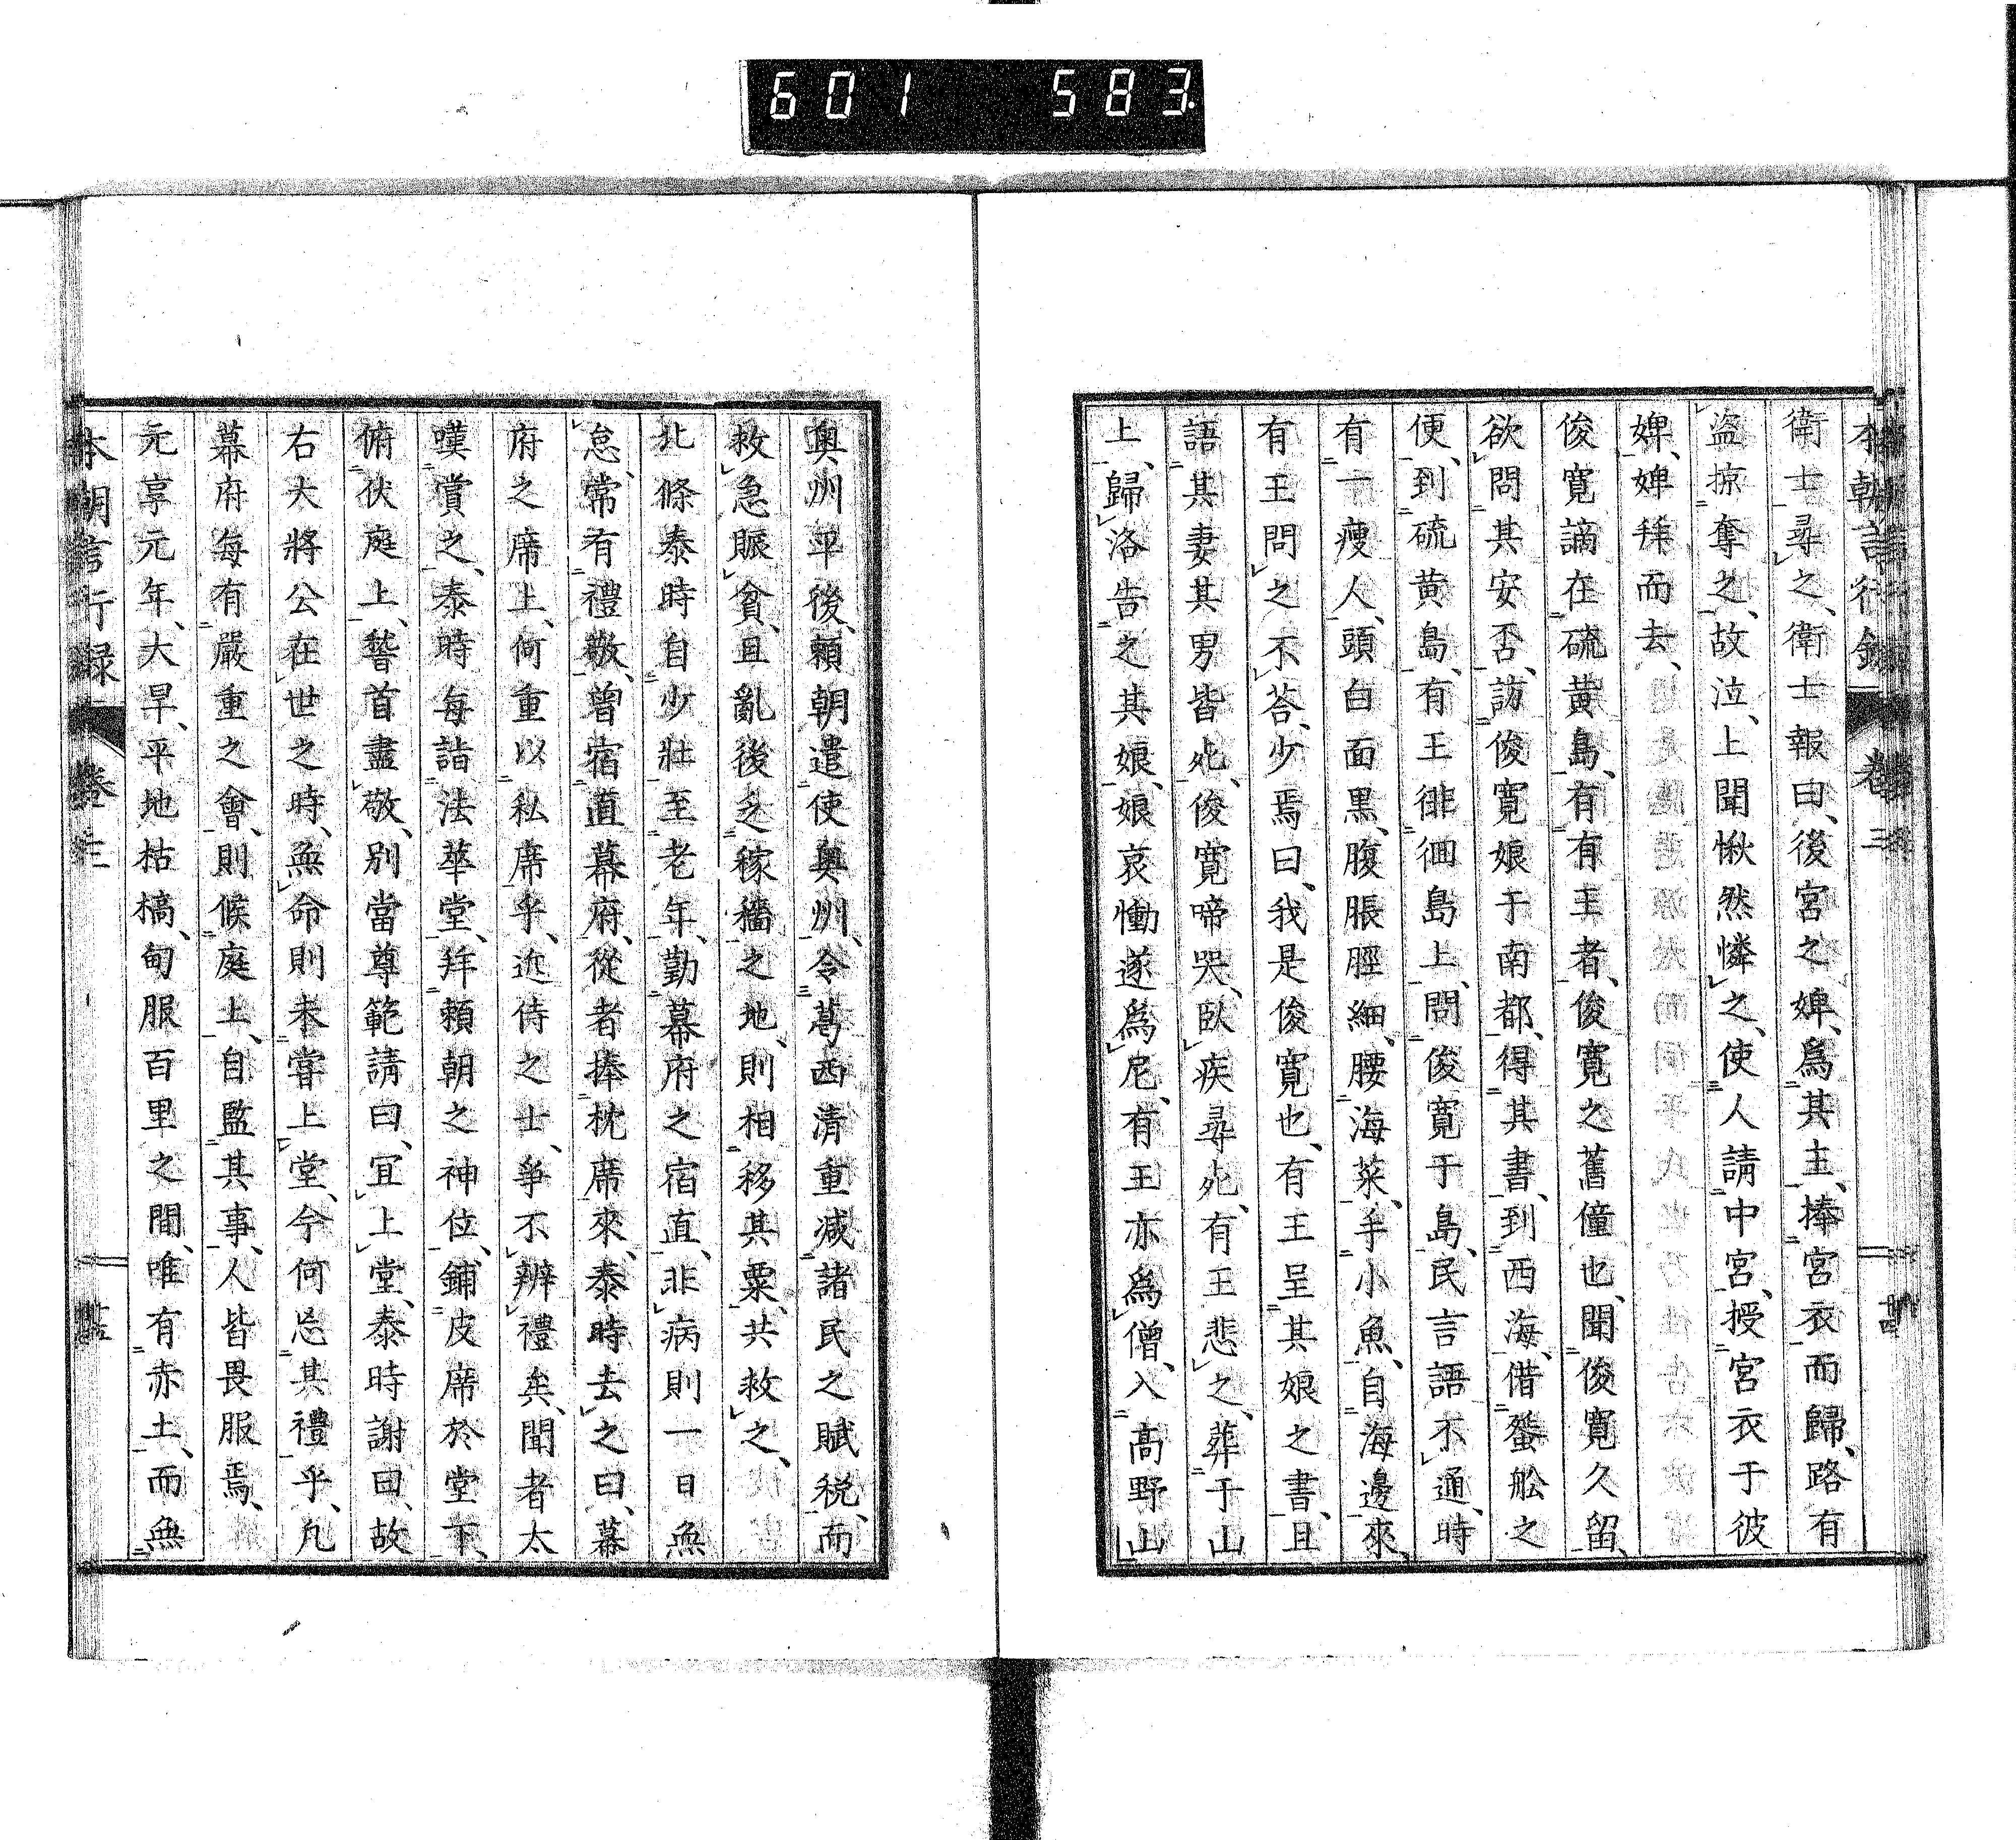 601 583
本朝言行録 卷三 十四
衛士尋之、衛士報曰、後宮之婢、爲其主、捧宮衣而歸、路有
盜掠奪之、故泣、上聞愀然憐之、使人請中宮、授宮衣于彼
婢、婢拜而去、
俊寬謫在硫黄島、有有王者、俊寬之舊僮也、聞俊寬久留、
欲問其安否、訪俊寬娘于南都、得其書、到西海、借蜑舩之
便、到硫黄島、有王徘徊島上、問俊寬于島、民言語不通、時
有一瘦人、頭白面黒、腹脹脛細、腰海菜、手小魚、自海邊來、
有王問之、不荅、少焉曰、我是俊寬也、有王呈其娘之書、且
語其妻其男皆死、俊寬啼哭、臥疾尋死、有王悲之、葬于山
上、歸洛告之其娘、娘哀慟遂爲尼、有王亦爲僧、入高野山
奧州平後、賴朝遣使奧州、令葛西清重减諸民之賦税、而
救急賑貧、且亂後之稼穡之地、則相移其粟、共救之、
北條泰時自少壯至老年、勤幕府之宿直、非病則一日無
怠、常有禮敬、曽宿直幕府、從者捧枕席來、泰時去之曰、幕
府之席上、何重以私席乎、近侍之士、爭不辨禮矣、聞者太
嘆賞之、泰時每詣法華堂、拜賴朝之神位、鋪皮席於堂下、
俯伏庭上、㬱首盡敬、別當尊範請曰、冝上堂、泰時謝曰、故
右大將公在世之時、無命則未嘗上堂、今何忘其禮乎、凡
幕府每有嚴重之會、則候庭上、自監其事、人皆畏服焉、
元享元年、大旱、平地枯槁、甸服百里之間、唯有赤土、而無
本朝言行録 卷三